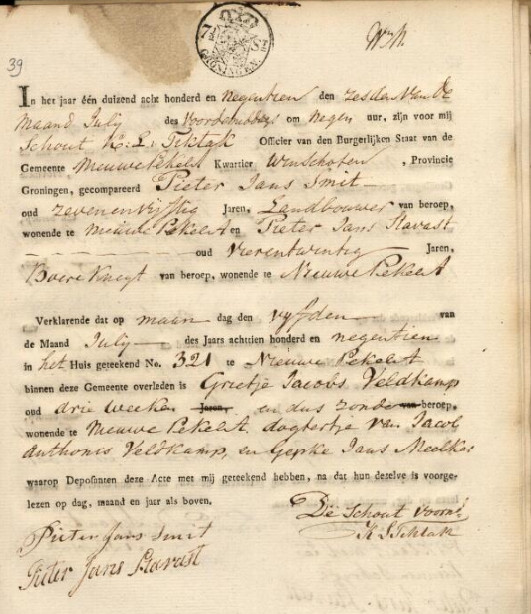 39
GRONINGEN
In het jaar één duizend acht honderd en negentien den zesden van de
maand July des Voordemiddags om negen uur, zijn voor mij
Schout Officier van den Burgerlijken Staat van de
Gemeente Nieuwe Pekela Kwartier Winschoten, Provincie
Groningen, gecompareerd Pieter Jans Smit
oud zevenenvyftig Jaren, Landbouwer van beroep,
wonende te Nieuwe Pekela en Pieter Jans Stavast
oud vierentwintig Jaren,
Boere Knegt van beroep, wonende te Nieuwe Pekela
Verklarende dat op maan dag den vyfden van
de Maand July des Jaars achttien honderd en negentien
in het Huis geteekend No. 321 te Nieuwe Pekela
binnen deze Gemeente overleden is Grietje Jacobs Veldkamp
oud drie weeken Jaren, en dus zonder van beroep,
wonende te Nieuwe Pekela, dogtertje van Jacob
Anthonis Veldkamp, en Jans
waarop Deposanten deze Acte met mij geteekend hebben, na dat hun dezelve is voorge-
lezen op dag, maand en jaar als boven.
De Schout voorn.
Pieter Jans Smit
Pieter Jans Stavast